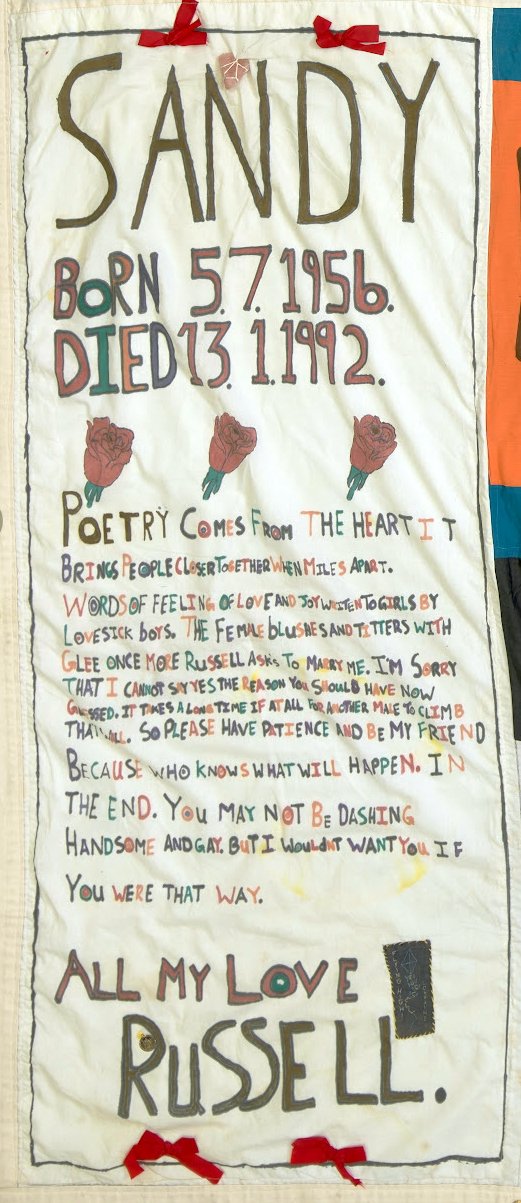 SANDY
BORN 5.7.1956.
DIED 13.1.1992.
POETRY COMES FROM THE HEART IT
BRINGS PEOPLE CLOSER TOGETHER WHEN MILES APART.
WORDS OF FEELING OF LOVE AND JOY WRITEN TO GIRLS BY
LOVESICK BOYS. THE FEMALE BLUSHES AND TITTERS WITH
GLEE ONCE MORE RUSSELL ASKS TO MARRY ME. I'M SORRY
THAT I CANNOT SAY YES THE REASON YOU SHOULD HAVE NOW
GUESSED. IT TAKES A LONG TIME IF AT ALL FOR ANOTHER MALE TO CLIMB
THAT WALL. SO PLEASE HAVE PATIENCE AND BE MY FRIEND
BECAUSE WHO KNOWS WHAT WILL HAPPEN. IN
THE END. YOU MAY NOT BE DASHING
HANDSOME AND GAY. BUT I WOULDNT WANT YOU IF
YOU WERE THAT WAY.
ALL MY LOVE
RUSSELL.